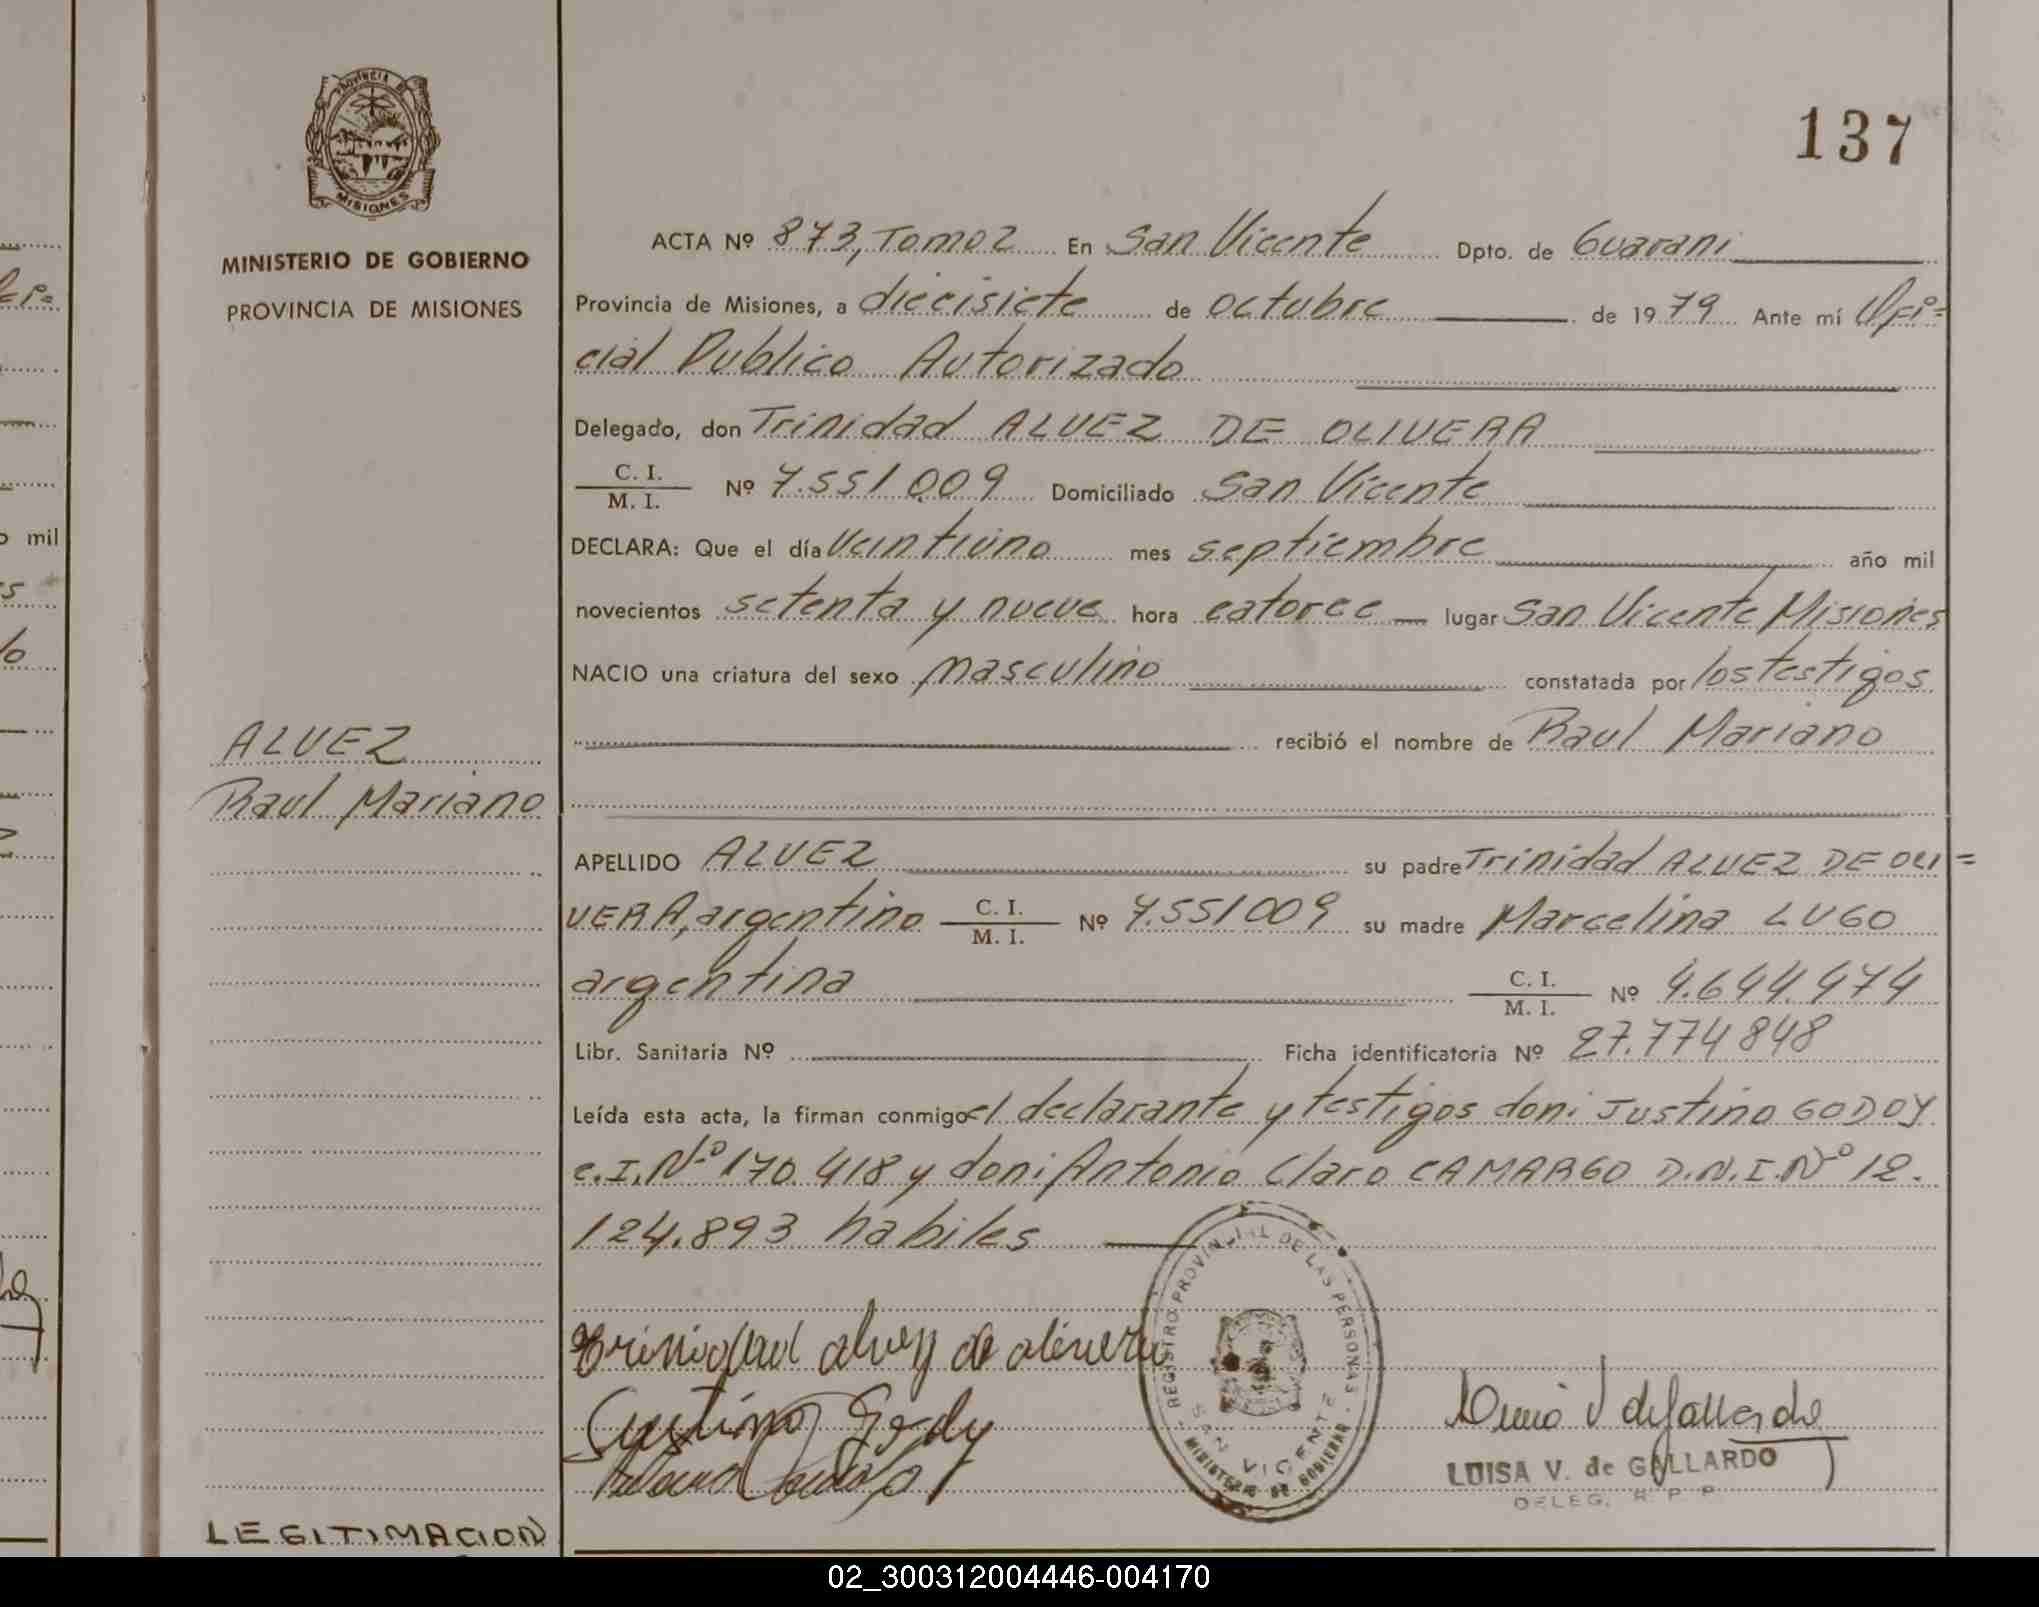 PROVINCIA DE
MISIONES
MINISTERIO DE GOBIERNO
PROVINCIA DE MISIONES
137
ACTA Nº 873, Tomo 2 En San Vicente Dpto. de Guarani
Provincia de Misiones, a diecisiete de octubre de 1979 Ante mí Ofi=
cial Publico Autorizado
Delegado, don Trinidad ALVEZ DE OLIVERA
C. I.
M. I. Nº 7.551.009 Domiciliado San Vicente
DECLARA: Que el día veintiuno mes septiembre año mil
novecientos setenta y nueve hora catorce lugar San Vicente Misiones
NACIO una criatura del sexo masculino constatada por los testigos
recibió el nombre de Raul Mariano
ALVEZ
Raul Mariano
APELLIDO ALVEZ su padre Trinidad ALVEZ DE OLI=
VERA, argentino C. I. M. I. Nº 7.551009 su madre Marcelina LUGO
argentina C. I. M. I. Nº 4.644.474
Libr. Sanitaria Nº Ficha identificatoria Nº 27.774848
Leída esta acta, la firman conmigo el declarante y testigos don: Justino GODOY
c.I.Nº 170.418 y don: Antonio Claro CAMARGO D.N.I.Nº 12.
124.893 habiles
REGISTRO PROVINCIAL DE LAS PERSONAS
SAN VICENTE
MINISTERIO DE GOBIERNO
Trinidad alvez de olivera
Justino Godoy
LUISA V. de GALLARDO
DELEG. R. P. P.
LEGITIMACION
02_300312004446-004170